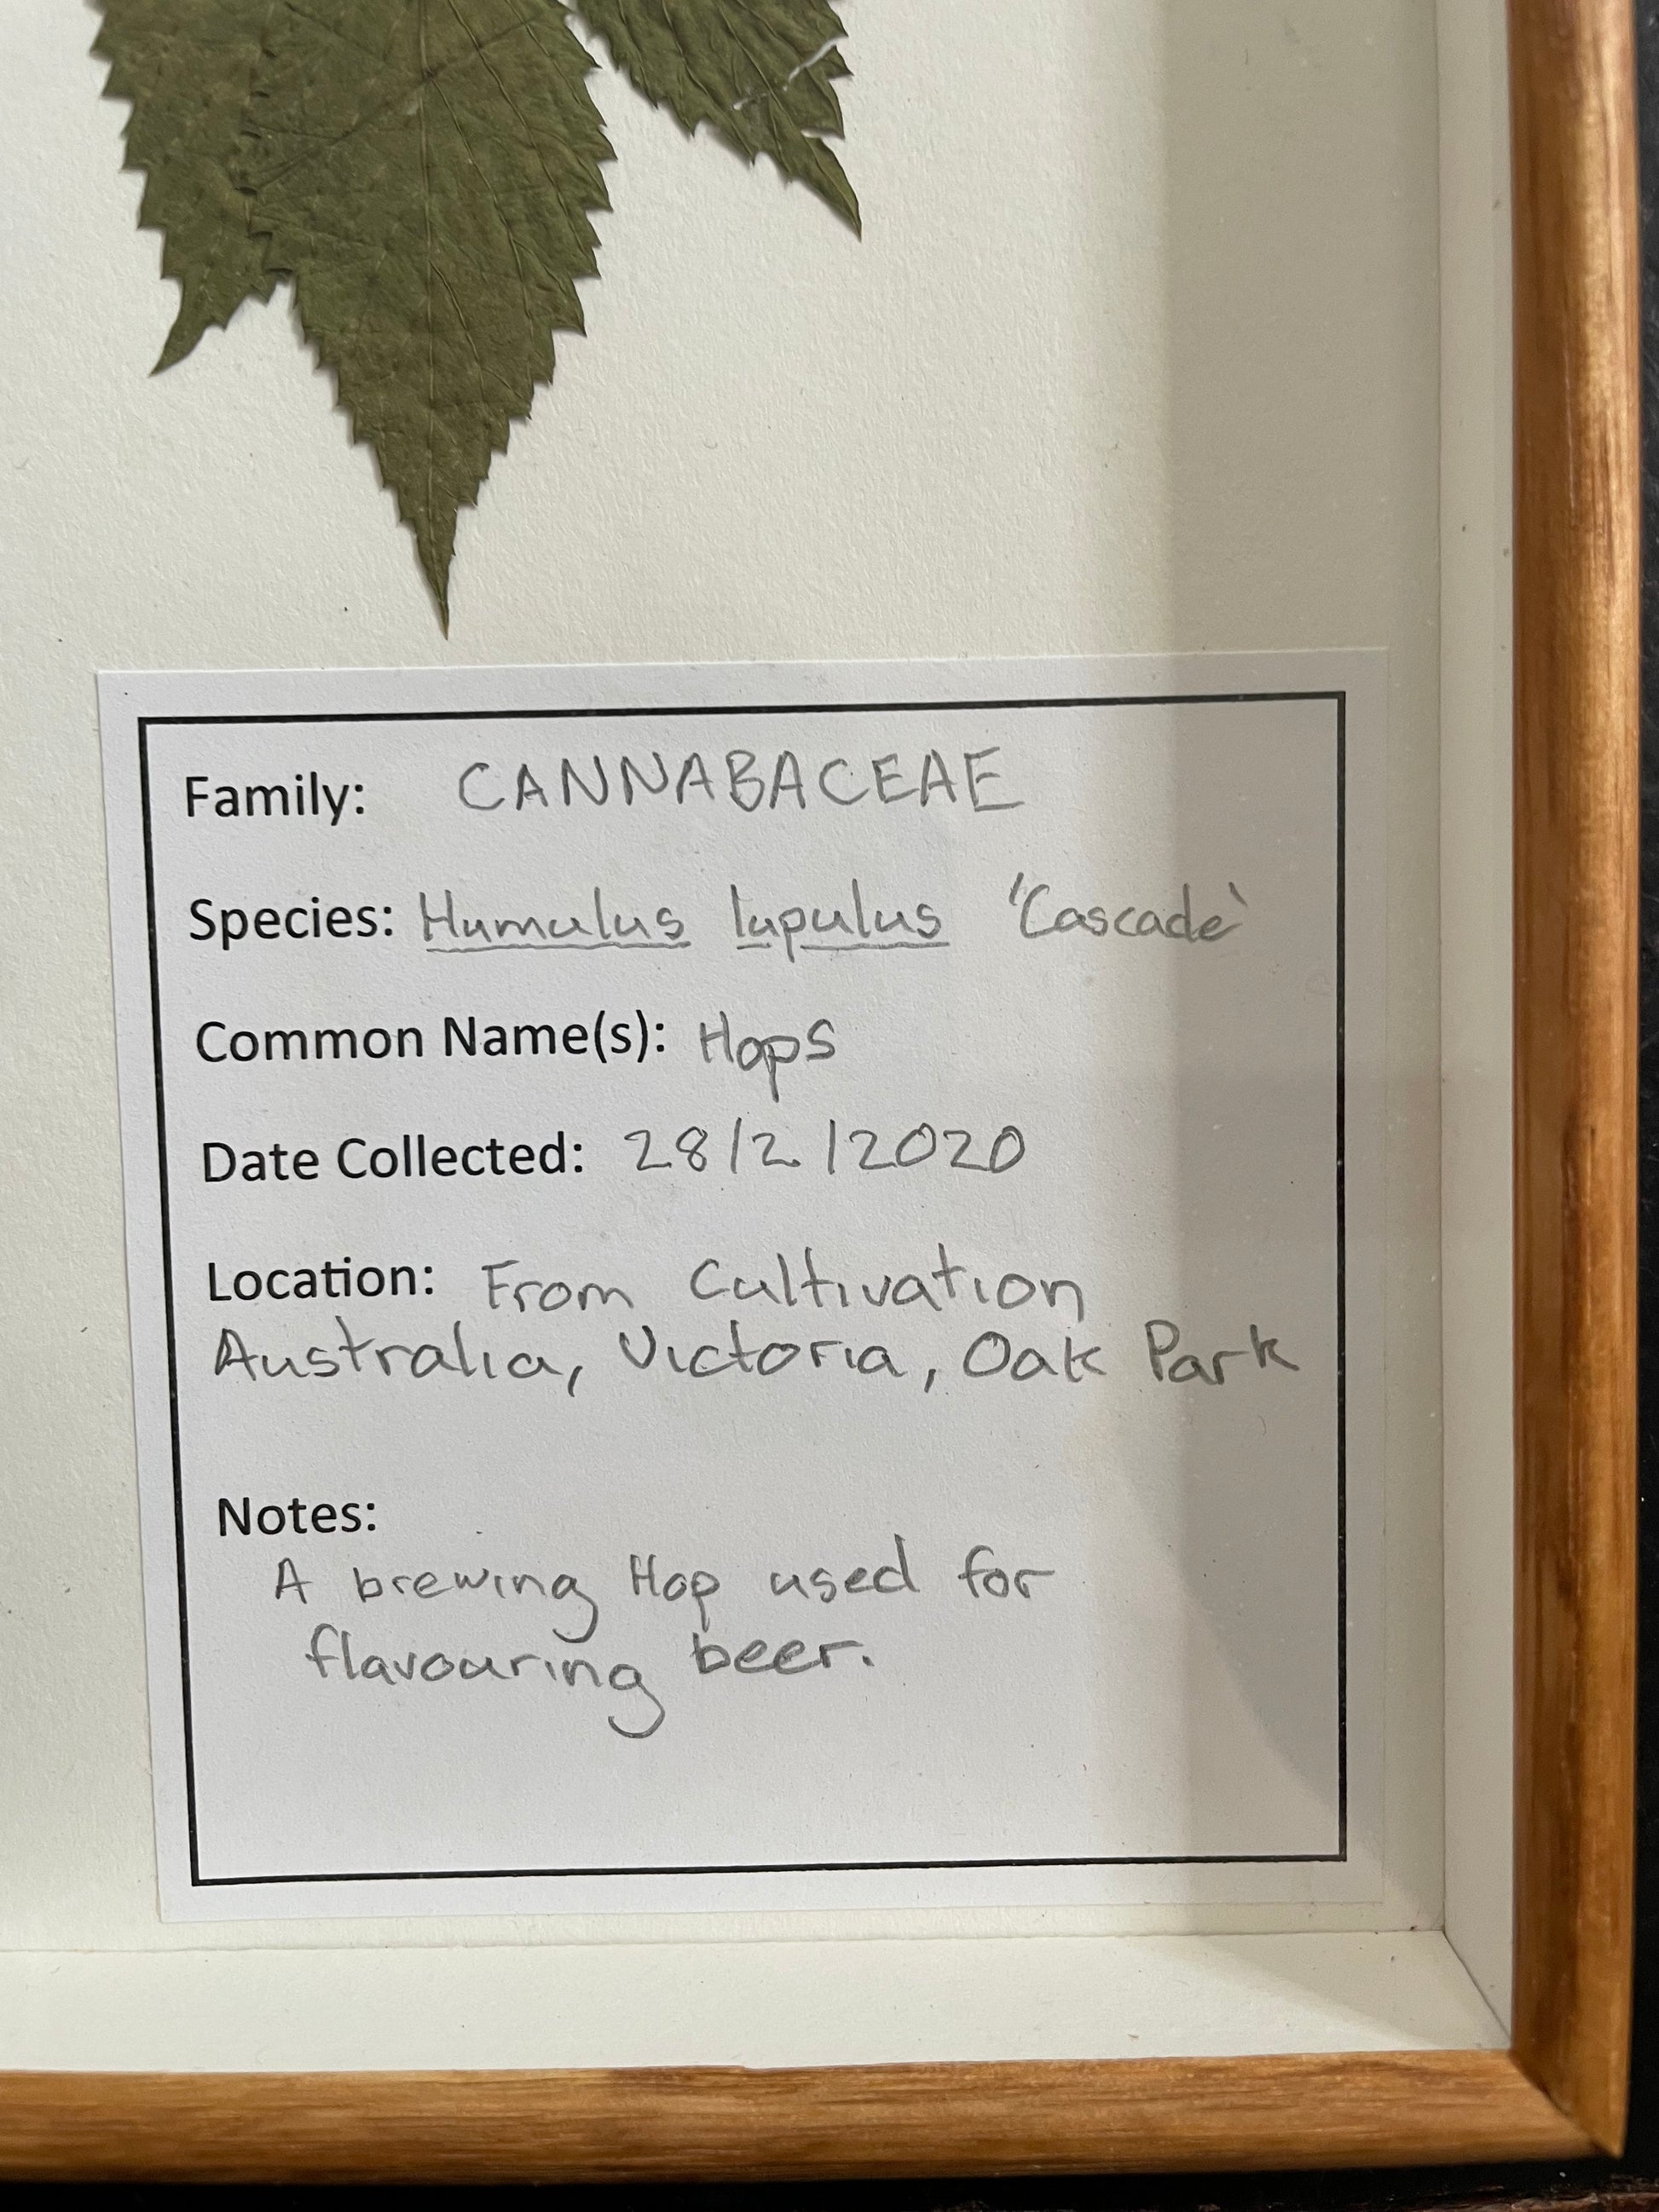 Family: CANNABACEAE
Species: Humulus lupulus 'Cascade'
Common Name(s): Hops
Date Collected: 28/2/2020
Location: From Cultivation
Australia, Victoria, Oak Park
Notes:
A brewing Hop used for
flavouring beer.